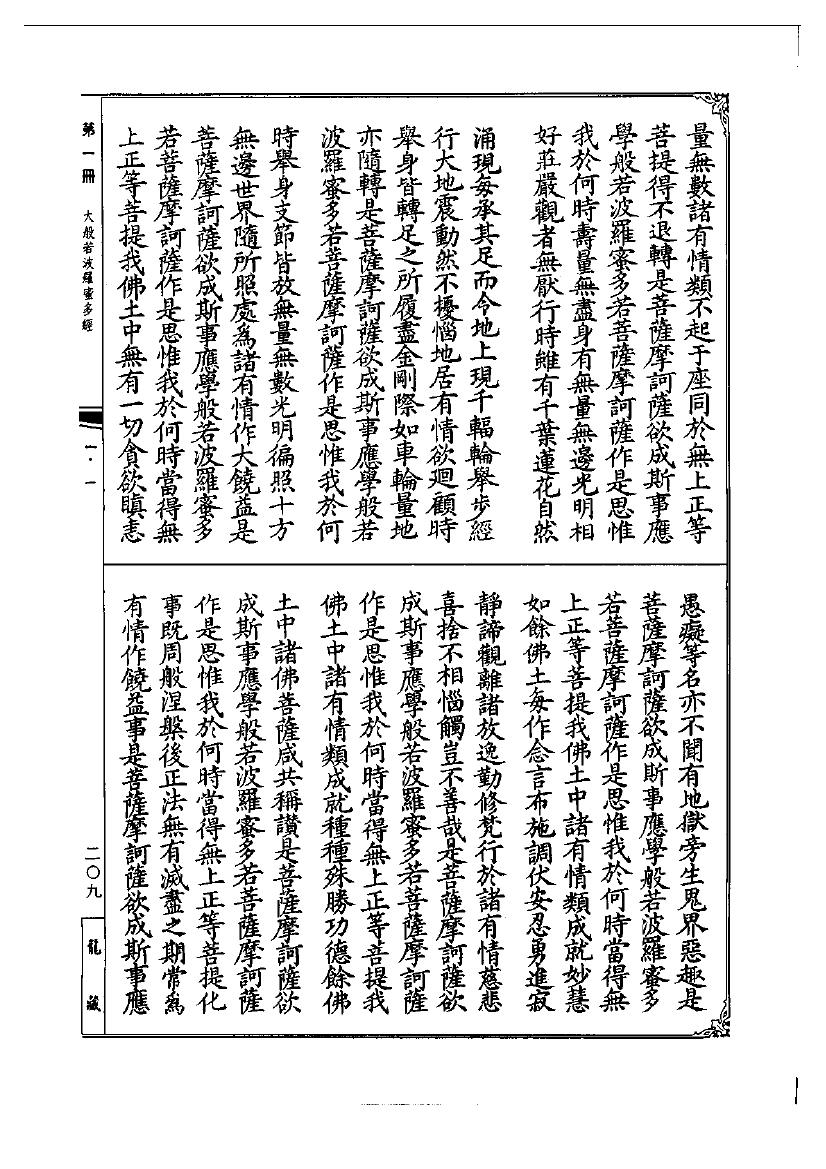 量無數諸有情類不起于座同於無上正等
菩提得不退轉是菩薩摩訶薩欲成斯事應
學般若波羅蜜多若菩薩摩訶薩作是思惟
我於何時壽量無盡身有無量無邊光明相
好莊嚴觀者無厭行時雖有千葉蓮花自然
涌現每承其足而令地上現千輻輪舉步經
行大地震動然不擾惱地居有情欲迴顧時
舉身皆轉足之所履盡金剛際如車輪量地
亦隨轉是菩薩摩訶薩欲成斯事應學般若
波羅蜜多若菩薩摩訶薩作是思惟我於何
時舉身支節皆放無量無數光明徧照十方
無邊世界隨所照處為諸有情作大饒益是
菩薩摩訶薩欲成斯事應學般若波羅蜜多
若菩薩摩訶薩作是思惟我於何時當得無
上正等菩提我佛土中無有一切貪欲瞋恚
愚癡等名亦不聞有地獄旁生鬼界惡趣是
菩薩摩訶薩欲成斯事應學般若波羅蜜多
若菩薩摩訶薩作是思惟我於何時當得無
上正等菩提我佛土中諸有情類成就妙慧
如餘佛土每作念言布施調伏安忍勇進寂
靜諦觀離諸放逸勤修梵行於諸有情慈悲
喜捨不相惱觸豈不善哉是菩薩摩訶薩欲
成斯事應學般若波羅蜜多若菩薩摩訶薩
作是思惟我於何時當得無上正等菩提我
佛土中諸有情類成就種種殊勝功德餘佛
土中諸佛菩薩咸共稱讚是菩薩摩訶薩欲
成斯事應學般若波羅蜜多若菩薩摩訶薩
作是思惟我於何時當得無上正等菩提化
事既周般涅槃後正法無有滅盡之期常為
有情作饒益事是菩薩摩訶薩欲成斯事應
第一冊 大般若波羅蜜多經
一·一
二〇九
龍藏